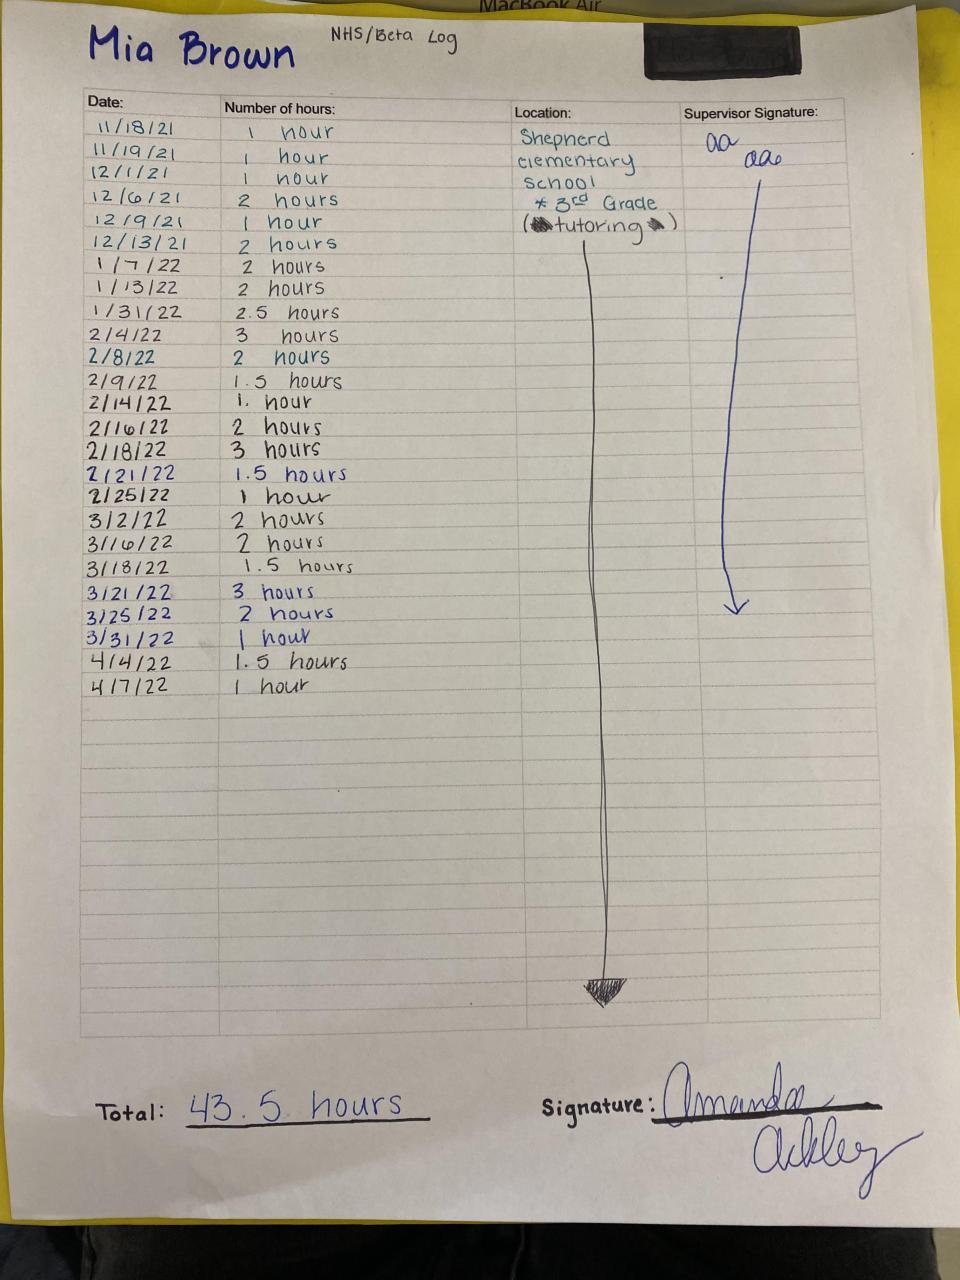 MacBook Air
Mia Brown NHS/Beta Log
Date: Number of hours: Location: Supervisor Signature:
11/18/21 1 hour Shepherd aa
11/19/21 1 hour elementary aa
12/1/21 1 hour school
12/6/21 2 hours * 3rd Grade
12/9/21 1 hour (tutoring)
12/13/21 2 hours
1/7/22 2 hours
1/13/22 2 hours
1/31/22 2.5 hours
2/4/22 3 hours
2/8/22 2 hours
2/9/22 1.5 hours
2/14/22 1. hour
2/16/22 2 hours
2/18/22 3 hours
2/21/22 1.5 hours
2/25/22 1 hour
3/2/22 2 hours
3/16/22 2 hours
3/18/22 1.5 hours
3/21/22 3 hours
3/25/22 2 hours
3/31/22 1 hour
4/4/22 1.5 hours
4/7/22 1 hour
Total: 43.5 hours Signature: Amanda
Ackley